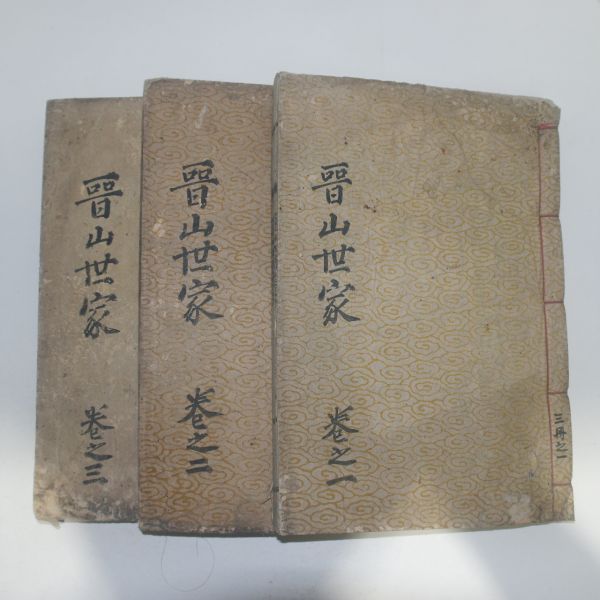 晋山世家
卷之一
三冊之一
晋山世家
卷之二
晋山世家
卷之三